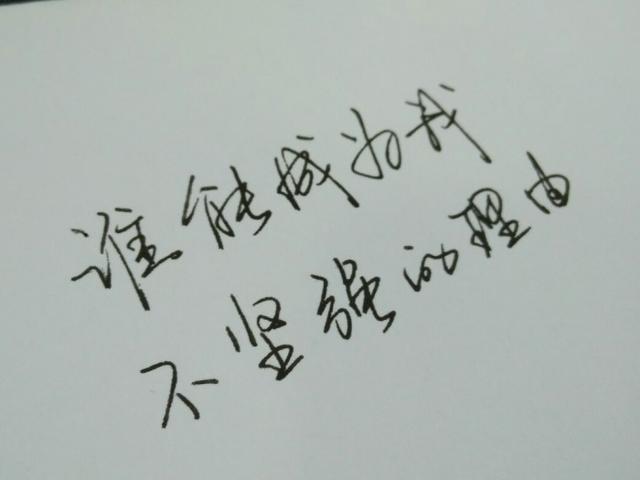 谁能成为我
不坚强的理由